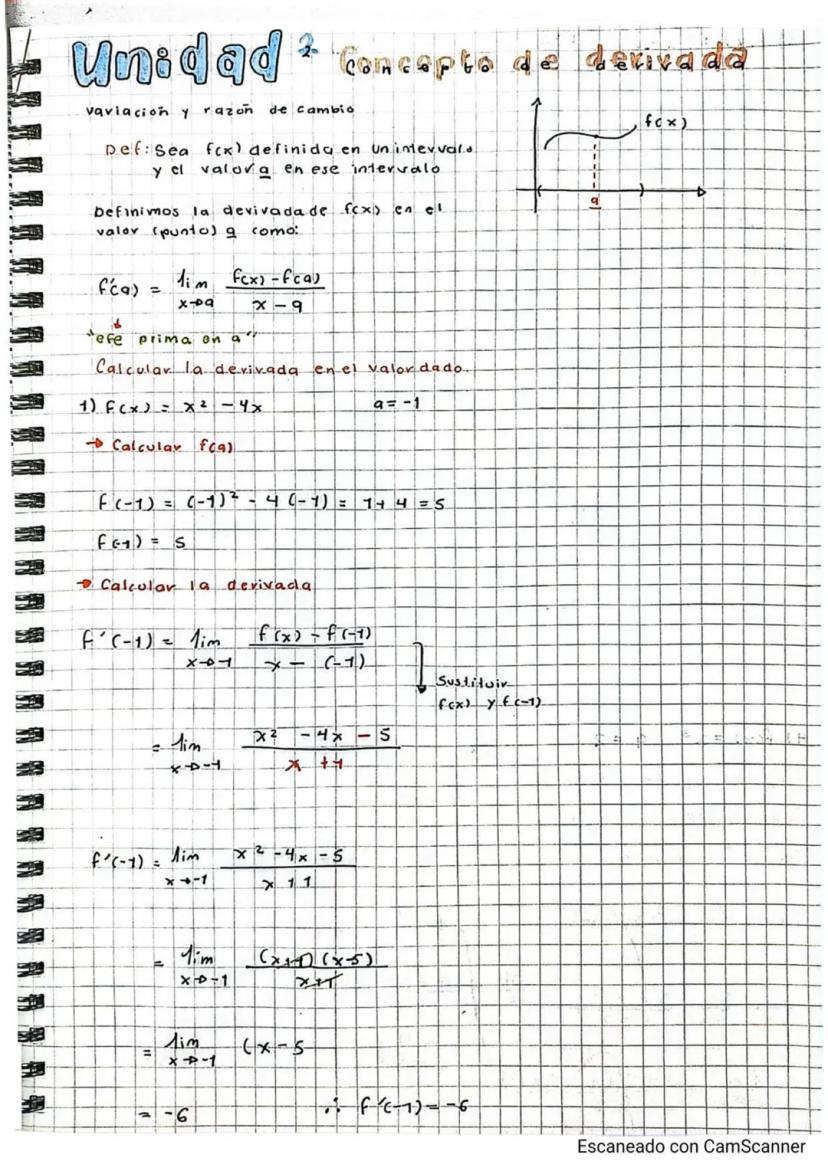 Unidad 2 Concepto de derivada
variación y razón de cambio
Def: Sea f(x) definida en un intervalo
y el valor a en ese intervalo
f(x)
a
Definimos la derivada de f(x) en el
valor (punto) a como:
f'(a) = lim x→a (f(x) - f(a)) / (x - a)
"efe prima en a"
Calcular la derivada en el valor dado.
1) f(x) = x² - 4x a = -1
→ Calcular f(a)
f(-1) = (-1)² - 4(-1) = 1 + 4 = 5
f(-1) = 5
→ Calcular la derivada
f'(-1) = lim x→-1 (f(x) - f(-1)) / (x - (-1))
Sustituir
f(x) y f(-1)
= lim x→-1 (x² - 4x - 5) / (x + 1)
f'(-1) = lim x→-1 (x² - 4x - 5) / (x + 1)
= lim x→-1 (x+1)(x-5) / (x+1)
= lim x→-1 (x - 5
= -6 ∴ f'(-1) = -6
Escaneado con CamScanner